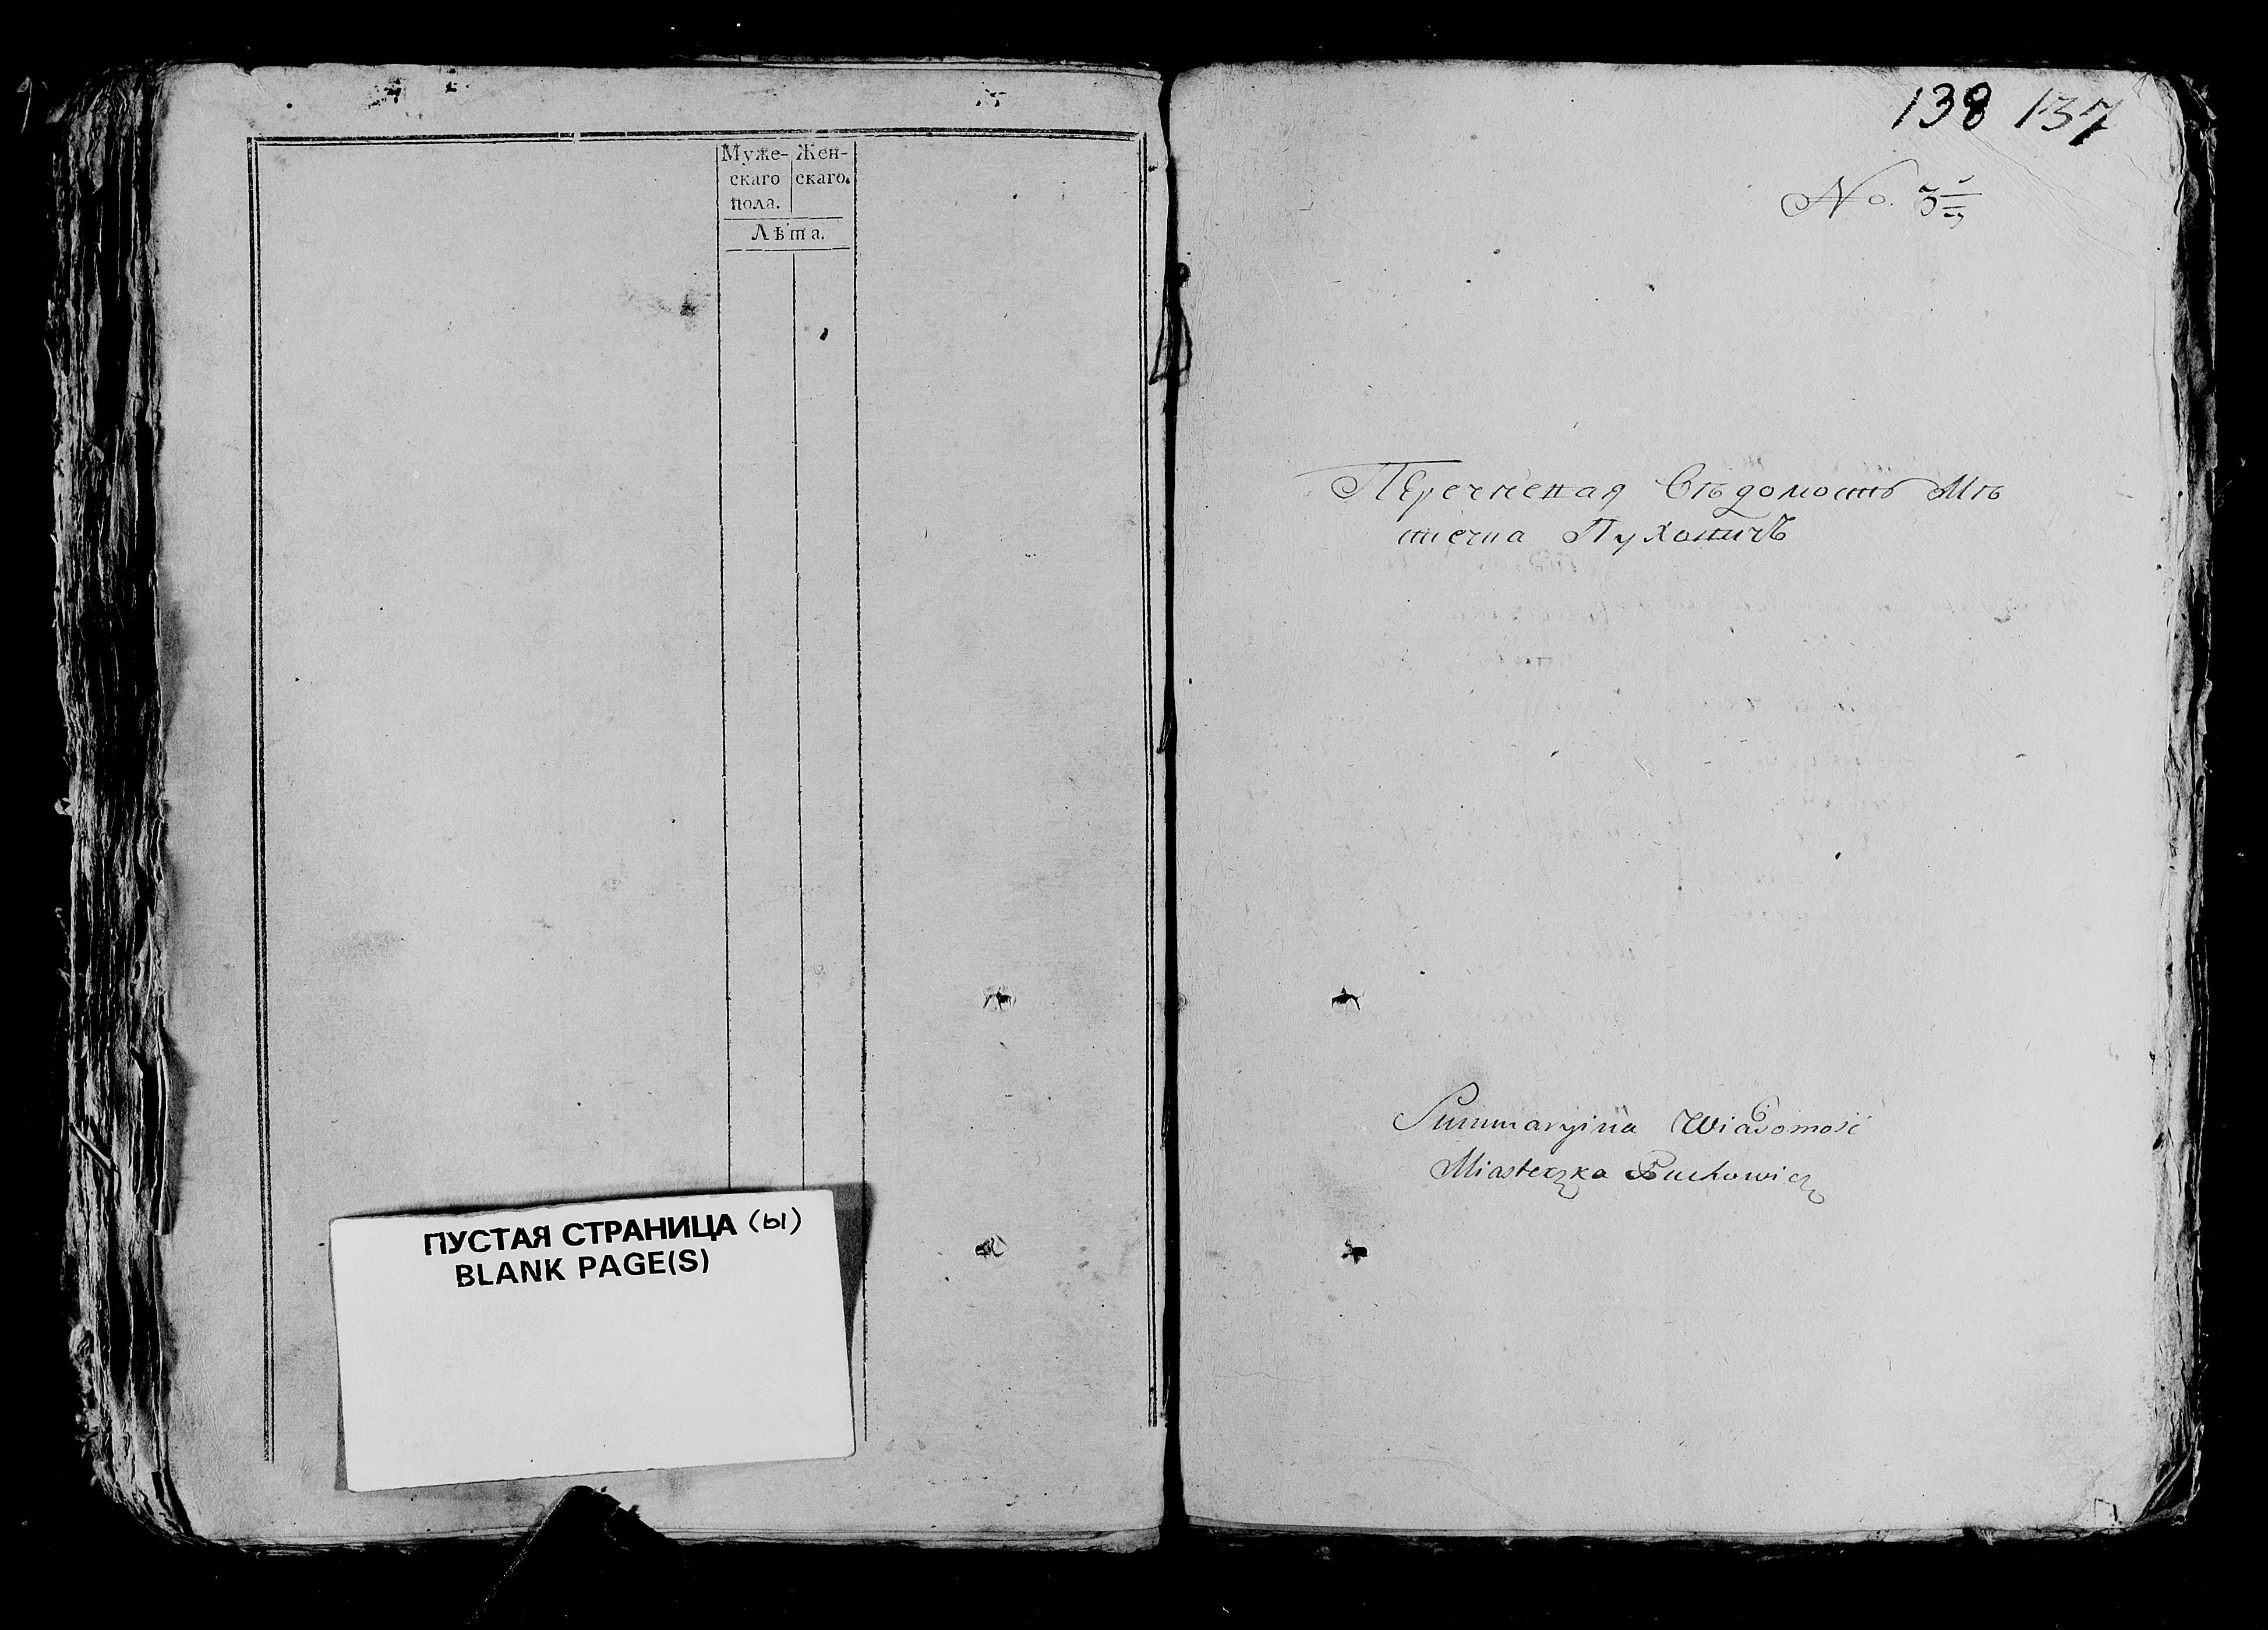 Муже- Жен-
скаго скаго.
пола.
Лѣта.
ПУСТАЯ СТРАНИЦА (ы)
BLANK PAGE(S)
138 137
No. 3
Перечневая Вѣдомость Мѣ
стечка Пуховичъ
Summaryina Wiadomość
Miasteczka Puchowicz